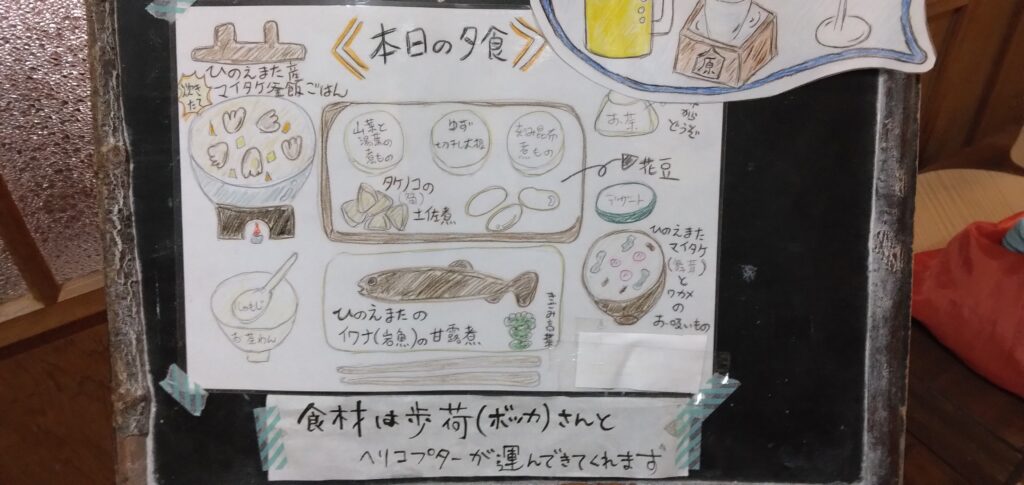 本日の夕食
炊き
たて
ひのえまた産
マイタケ釜飯ごはん
山菜と
湯葉の
煮もの
ゆず
切干し大根
刻み昆布
煮もの
お茶
どうぞ
花豆
タケノコの
(筍)
土佐煮
デザート
ひのえまた
マイタケ
(舞茸)
と
ワカメ
の
お吸いもの
しゃもじ
お茶わん
ひのえまたの
イワナ(岩魚)の甘露煮
原
食材は歩荷(ボッカ)さんと
ヘリコプターが運んできてくれます